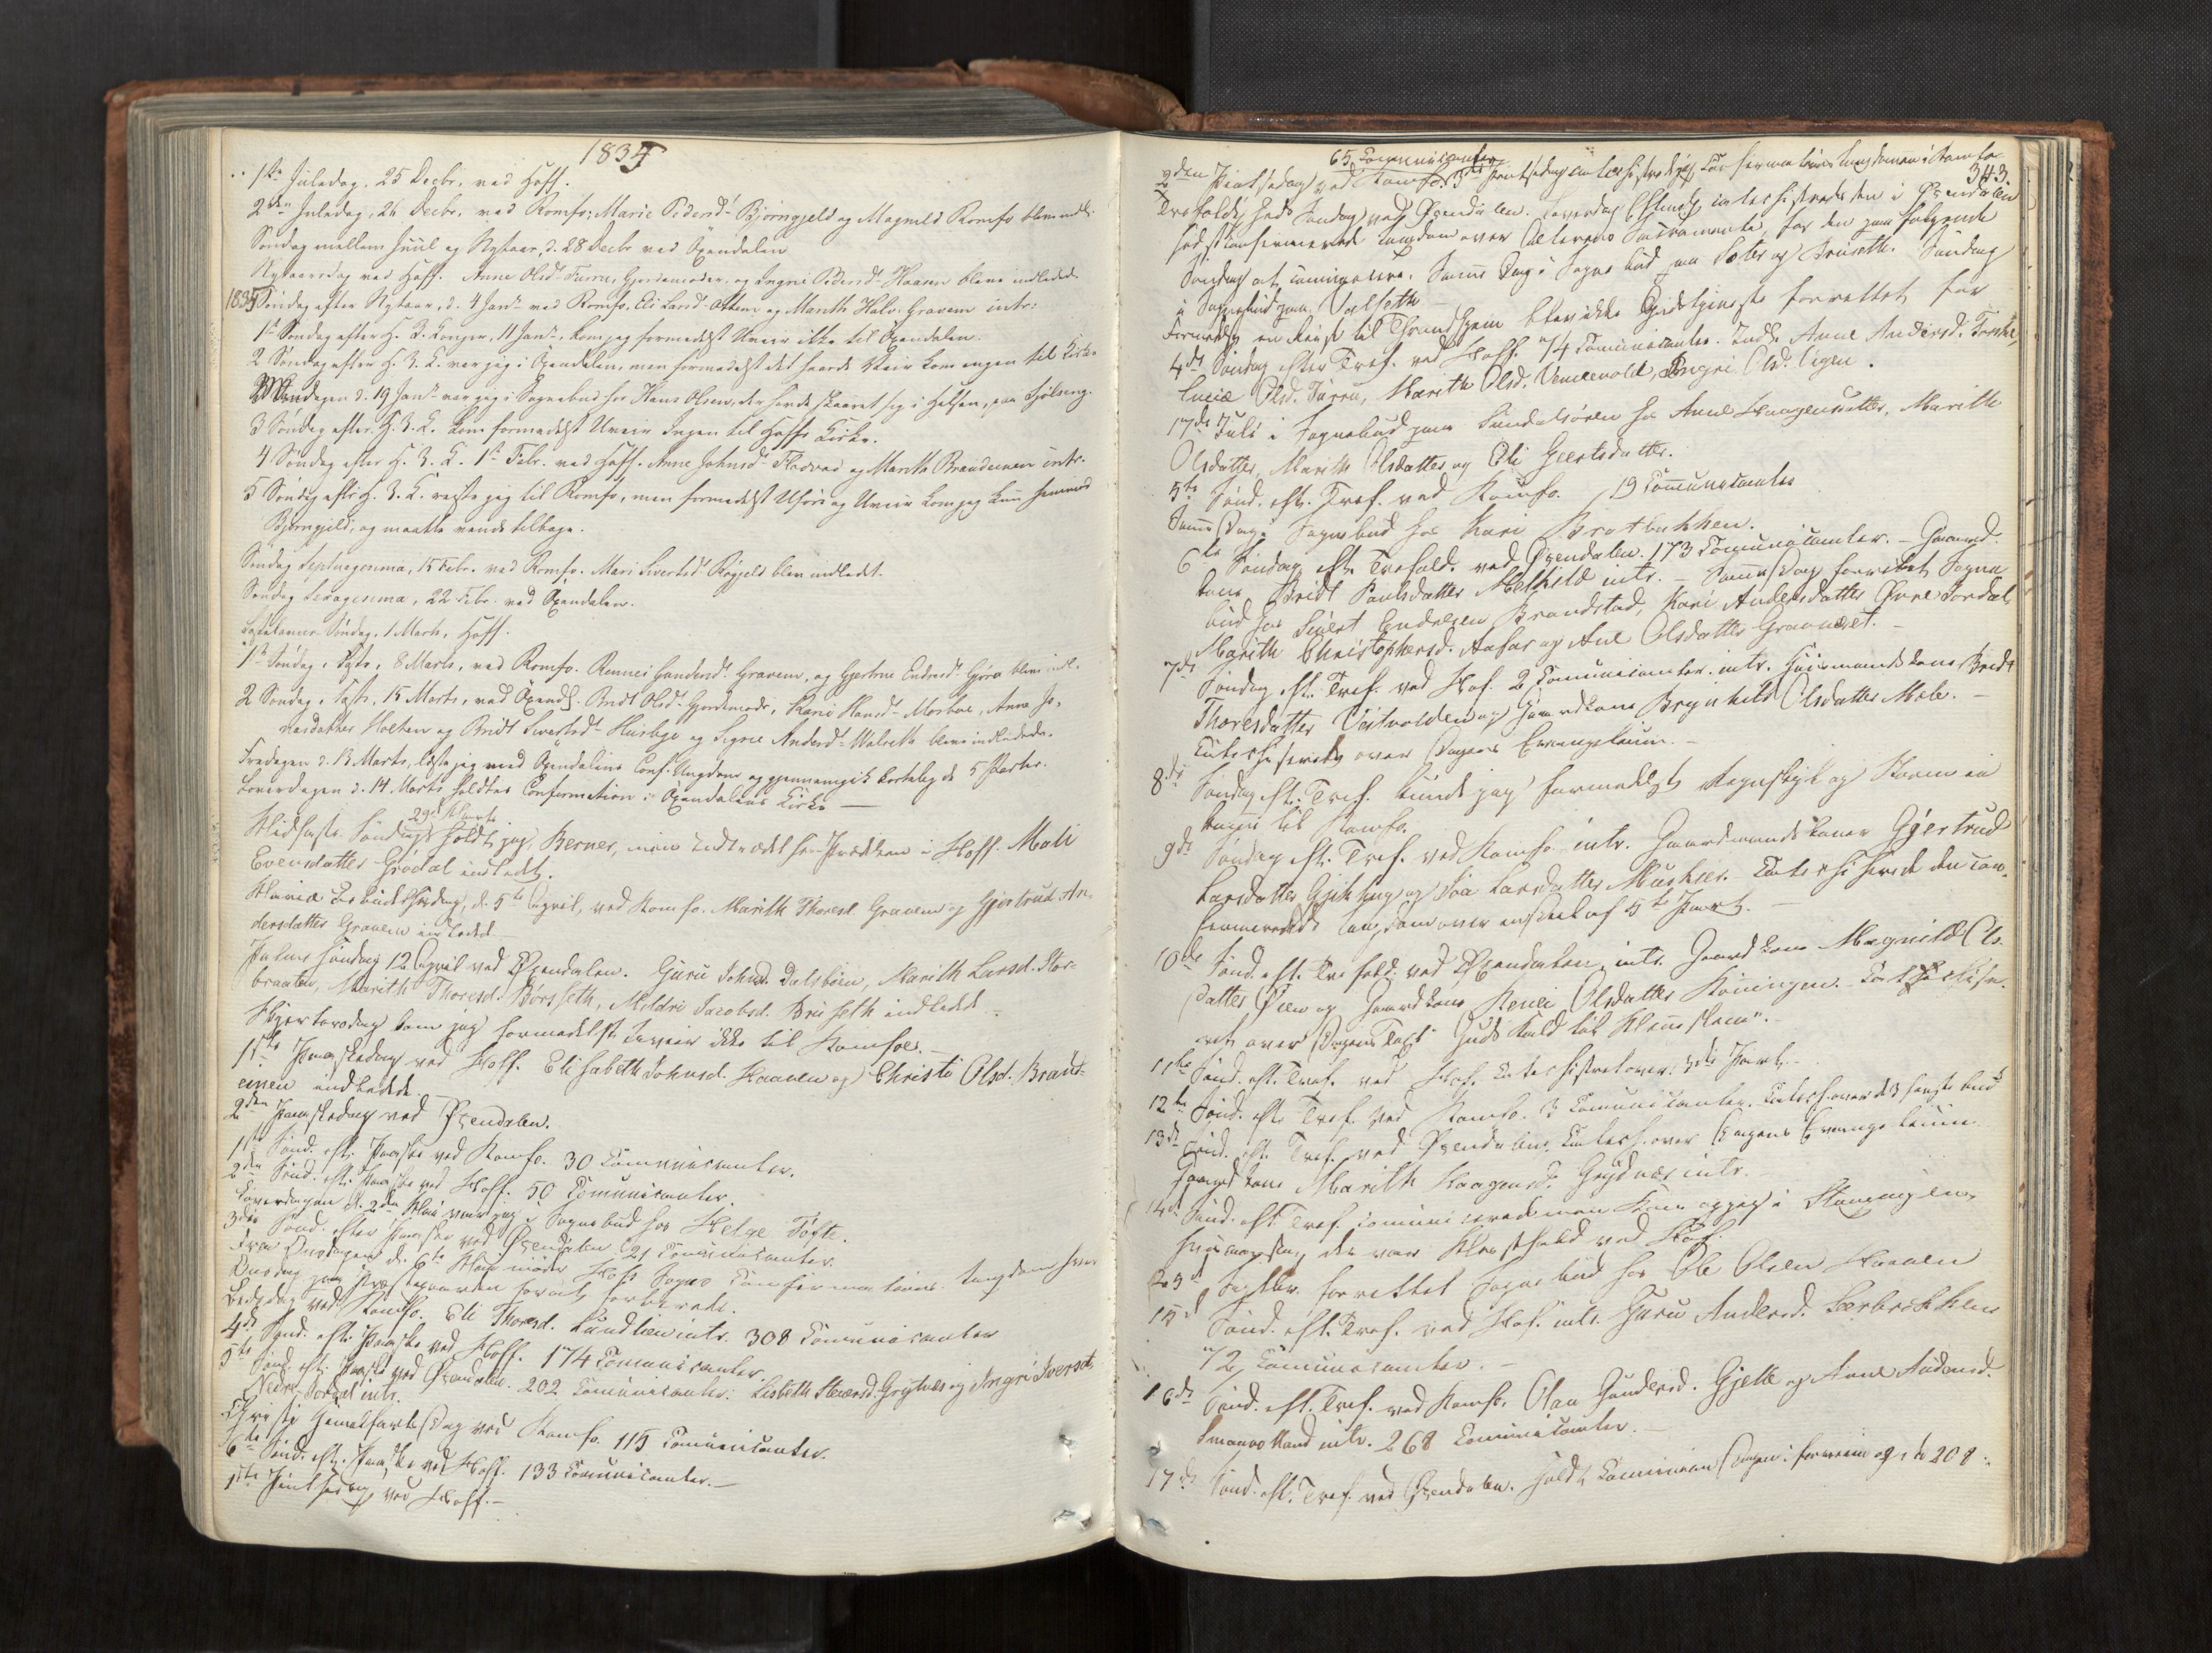 1834
1ste Juledag, 25 Decbr. ved Hoff.
2den Juledag, 26 Decbr. ved Romfo; Marie Pedersd. Bjørngjeld og Magnild Romfo blev indl.
Søndag mellem Juul og Nytaar, d. 28 Decbr ved Øxendalen
Nytaarsdag ved Hoff. Anne Olsd. Furru, Gjordemoder, og Ingri Pedersd. Haasen bleve indledede.
1835 Søndag efter Nytaar, d. 4 Janr. ved Romfo. Eli Larsd. Ottem og Marith Halv. Gravem intr:
1ste Søndag efter H. 3. Konger, 11 Janr., kom jeg formedelst Uveir ikke til Øxendalen.
2 Søndag efter H. 3. K. var jeg i Øxendalen, men formedelst det haarde Veir kom ingen til Kirke
Mandagen d. 19 Janr. var jeg i Sognebud hos Hans Olsen, der havde skaaret sig i Halsen, paa Fjølseng.
3 Søndag efter H. 3. K. kom formedelst Uveir Ingen til Hoffs Kirke.
4 Søndag efter H. 3. K. 1ste Febr. ved Hoff. Anne Johnsd. Flovad og Marith Brandeinen intr.
5 Søndag efter H. 3. K. reiste jeg til Romfo, men formedelst Uføre og Uveir kom jeg kun
Bjørngjeld, og maatte vende tilbage.
Søndag Septuagesima, 15 Febr. ved Romfo. Mari Sivertsd. Røyjeld blev indledet.
Søndag Sexagesima, 22 Febr. ved Øxendalen.
Fastelavns-Søndag, 1 Marts, Hoff.
1ste Søndag i Faste, 8 Marts, ved Romfo. Rannei Gundersd. Gravem, og Gjertrue Endresd. Gjøra bleve indl.
2 Søndag i Faste, 15 Marts, ved Øxend. Brit Olsd. Gjordemoder, Kari Hansd. Morboe, Anne Jo-
nasdatter Holten og Brit Sivertsd. Husbye og Sigrie Andersd. Walseth bleve indledede.
Fredagen d. 13 Marts, læste jeg med Øxendalens Conf. Ungdom og gjennemgik kortelig de 5 Parter.
Løverdagen d. 14 Marts holdtes Confirmation i Øxendalens Kirke —
29de Marts
Midfaste Søndag holdt jeg, Berner, min Indtrædelses-Prædiken i Hoff. Mali
Evensdatter Grødal indledt.
Mariæ Bebudelsesdag, d. 5te April, ved Romfo. Marith Thoresd. Gravem og Gjertrud An-
dersdatter Gravem indledede
Palme Søndag 12 April ved Øxendalen. Guru Johnsd. Dalsbøen, Marith Larsd. Stor-
braaten, Marith Thoresd. Børsseth, Mildri Jacobsd. Bruseth indledet
Skjertorsdag kom jeg formedelst Uveir ikke til Romfoe.
1ste Paaskedag ved Hoff. Elisabeth Johnsd. Haaven og Christi Olsd. Brand-
einen indledede.
2den Paaskedag ved Øxendalen.
1ste Sønd. eft. Paaske ved Romfo. 30 Communicanter.
2den Sønd. eft. Paaske ved Hoff. 50 Communicanter.
Løverdagen d. 2den Mai var jeg i Sognebud hos Helge Tofte.
3die Sønd. efter Paaske ved Øxendalen 21 Communicanter.
Fra Onsdagen d. 6te Mai møder Hofs Sogns Confirmations Ungdom hver
Onsdag paa Præstegaarden for at forberedes.
Bededag ved Romfo. Eli Thoresd. Lundlien intr. 308 Communicanter
4de Sønd. eft. Paaske ved Hoff. 174 Communicanter.
5te Sønd. eft. Paaske ved Øxendalen. 202 Communicanter. Lisbeth Steensd. Grytnes og Ingri Iversd.
Nedre Jordal intr.
Christi Himmelfartsdag ved Romfo. 115 Communicanter.
6te Sønd. eft. Paaske ved Hoff. 133 Communicanter.—
1ste Pintsedag ved Hoff.—
343.
65 Communicanter
2den Pintsedag ved Romfo. 3die Pintsedag catechiserede jeg Confirmations Ungdommen i Romfo
Trefoldigheds Søndag ved Øxendalen. Løverdag Eftm. catechiserede den i Øxendalen
sidst confirmerede Ungdom over Alterens Sacramente, for den paa følgende
Søndag at communicere. Samme Dag i Sognebud paa Sæter og Bruseth. Søndag
i Sognebud paa Valseth
Formedelst en Reise til Trondhjem blev ikke Gudstjeneste forrettet før
4de Søndag efter Tref. ved Hoff. 74 Communicanter. Indl. Anne Andersd. Torske,
Lucie Olsd. Furru, Marith Olsd. Vennevold, Ingri Olsd. Ugen.
17de Juli i Sognebud paa Sundalsøren hos Anne Haagensdatter, Marith
Olsdatter, Marith Olsdatter og Eli Geertsdatter.
5te Sønd. eft. Tref. ved Romfo. 19 Communicanter
Samme Dag i Sognebud hos Kari Bratbakken.
6te Søndag eft. Trefold. ved Øxendalen. 173 Communicanter. – Gaardmd.
kone Bridt Paulsdatter Melkild intr. – Samme Dag forrettet Sogne
bud hos Sivert Endresen Brandstad, Kari Andersdatter Øvre Jordal
Marith Christophersd. Aafar og Ane Olsdatter Graaneset. –
7de Søndag eft. Tref. ved Hof. 2 Communicanter. intr. Huusmandskone Bridt
Thoresdatter Veitvolden og Gaardkone Brynhild Olsdatter Mæle. –
Catechiserede over Dagens Evangelium. –
8de Søndag eft. Tref. kunde jeg formedelst Regnskyl og Storm ei
komme til Romfo.
9de Søndag eft. Tref. ved Romfo intr. Gaardmandskoner Gjertrud
Larsdatter Gjikling og Joa Larsdatter Musgjer. Catechiserede den con-
firmerede Ungdom over endeel af 5te Part.
10de Sønd. eft. Trefold. ved Øxendalen intr. Gaardkone Magnild Ols-
datter Øien og Gaardkone Renei Olsdatter Koningen. Catechise-
ret over Dagens Text "Guds Kald til Menneskene".
11te Sønd. eft. Tref. ved Hof. Catechiseret over 3die Part.
12te Sønd. eft. Tref. ved Romfo. 3 Communicanter. Catech. over de 3 første bud
13de Sønd. eft. Tref. ved Øxendalen. Catech. over Dagens Evangelium
Gaardkone Marith Haagensd. Grytnæs intr.
14de Sønd. eft. Tref.
23de Septbr. forrettet Sognebud hos Ole Olsen Haaven
15de Sønd. eft. Tref. ved Hof. intr. Guru Andersd. Særbrekken
72 Communicanter. –
16de Sønd. eft. Tref. ved Romfo. Olau Gundersd. Gjelle og Anne Andersd.
Smaavoldand intr. 268 Communicanter.
17de Sønd. eft. Tref. ved Øxendalen. holdt Communion 208